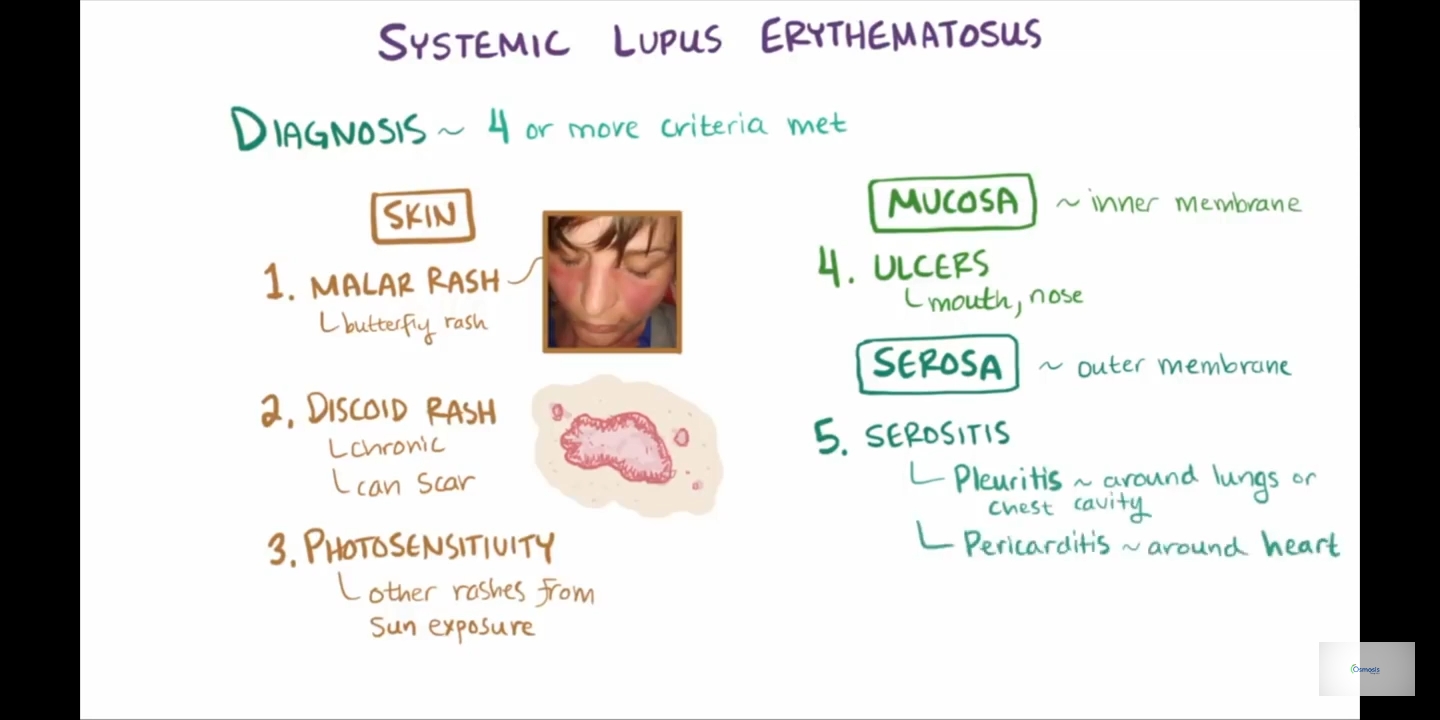 SYSTEMIC LUPUS ERYTHEMATOSUS
DIAGNOSIS ~ 4 or more criteria met
SKIN
1. MALAR RASH
butterfly rash
2. DISCOID RASH
chronic
can scar
3. PHOTOSENSITIVITY
other rashes from
sun exposure
MUCOSA ~ inner membrane
4. ULCERS
mouth, nose
SEROSA ~ outer membrane
5. SEROSITIS
Pleuritis ~ around lungs or
chest cavity
Pericarditis ~ around heart
Osmosis